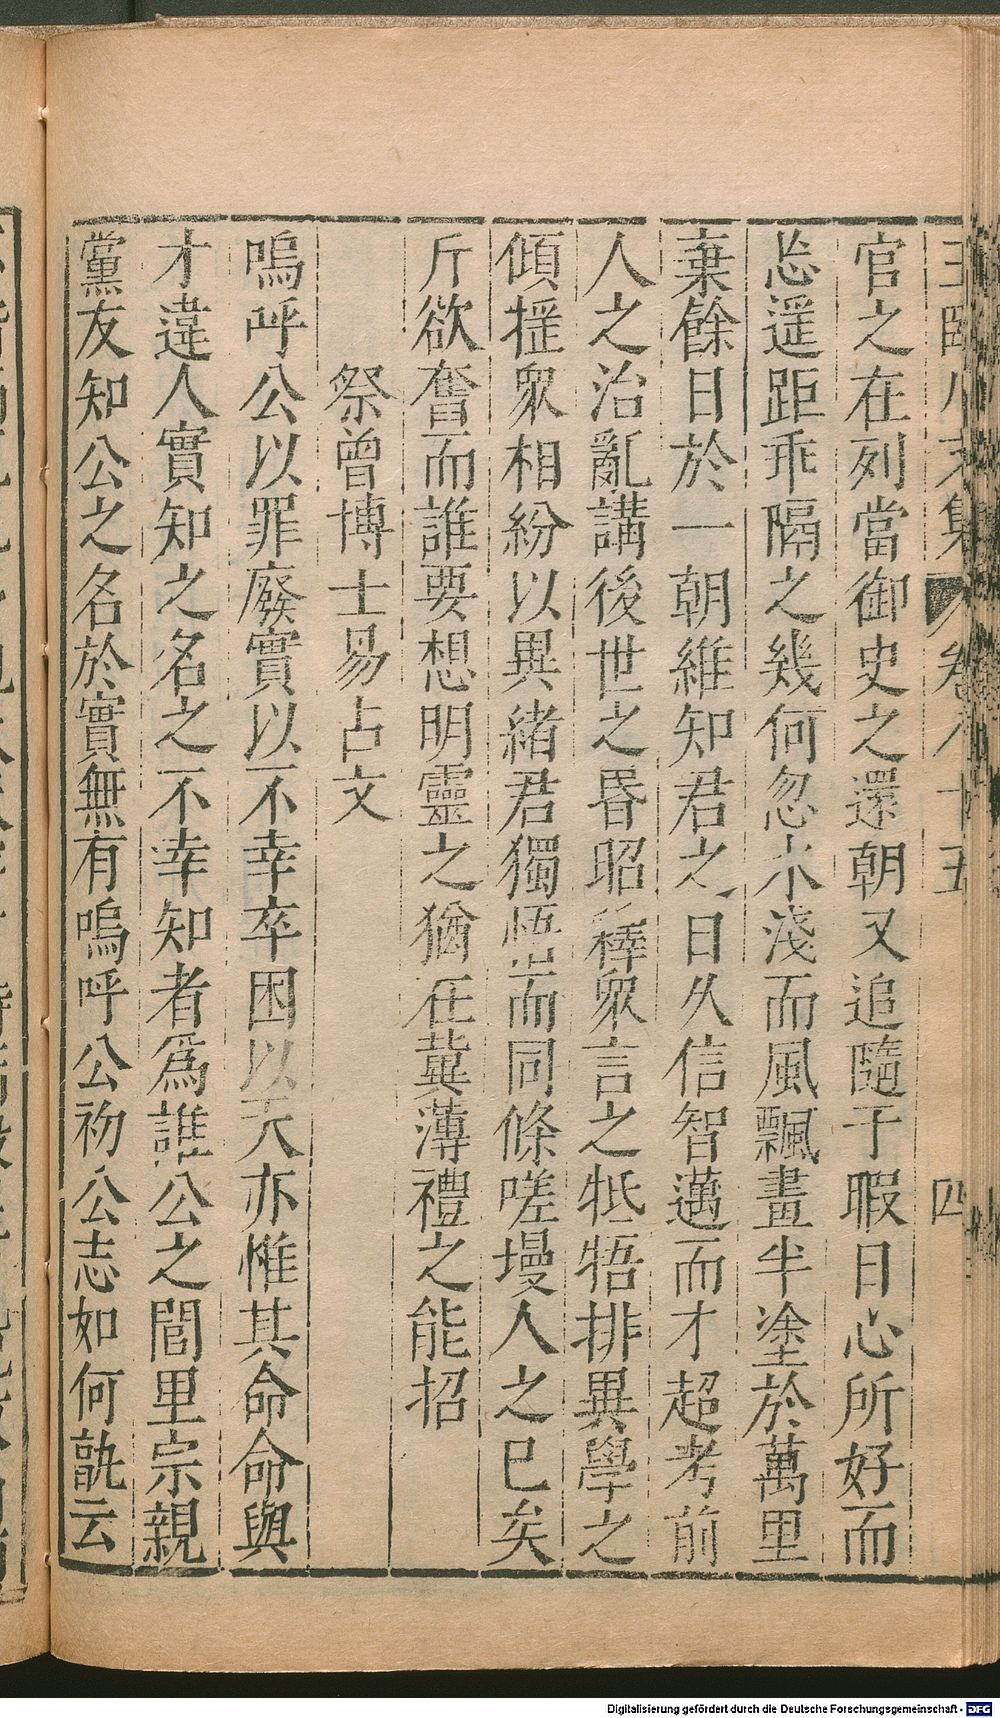 王臨川文集 卷八十五 四
官之在列當御史之還朝又追隨于暇日心所好而
忘遥距乖隔之幾何忽水淺而風飄晝半塗於萬里
棄餘日於一朝維知君之日久信智邁而才超考前
人之治亂講後世之昬昭釋衆言之牴牾排異學之
傾揺衆相紛以異緒君獨悟而同條嗟墁人之已矣
斤欲奮而誰要想明靈之猶在冀薄禮之能招
祭曾博士易占文
嗚呼公以罪廢實以不幸卒困以夭亦惟其命命與
才違人實知之名之不幸知者爲誰公之閭里宗親
黨友知公之名於實無有嗚呼公初公志如何孰云
Digitalisierung gefördert durch die Deutsche Forschungsgemeinschaft - DFG